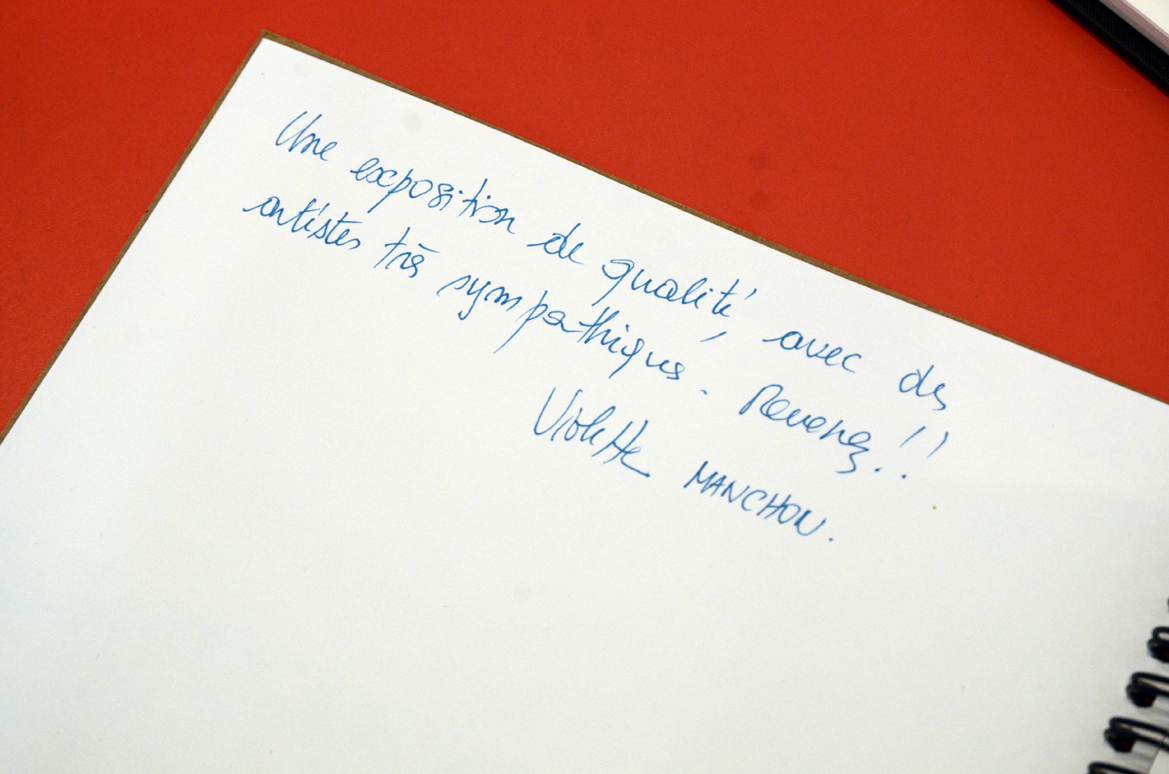 Une exposition de qualité, avec des
artistes très sympathiques. Revenez!!
Violette MANCHON.